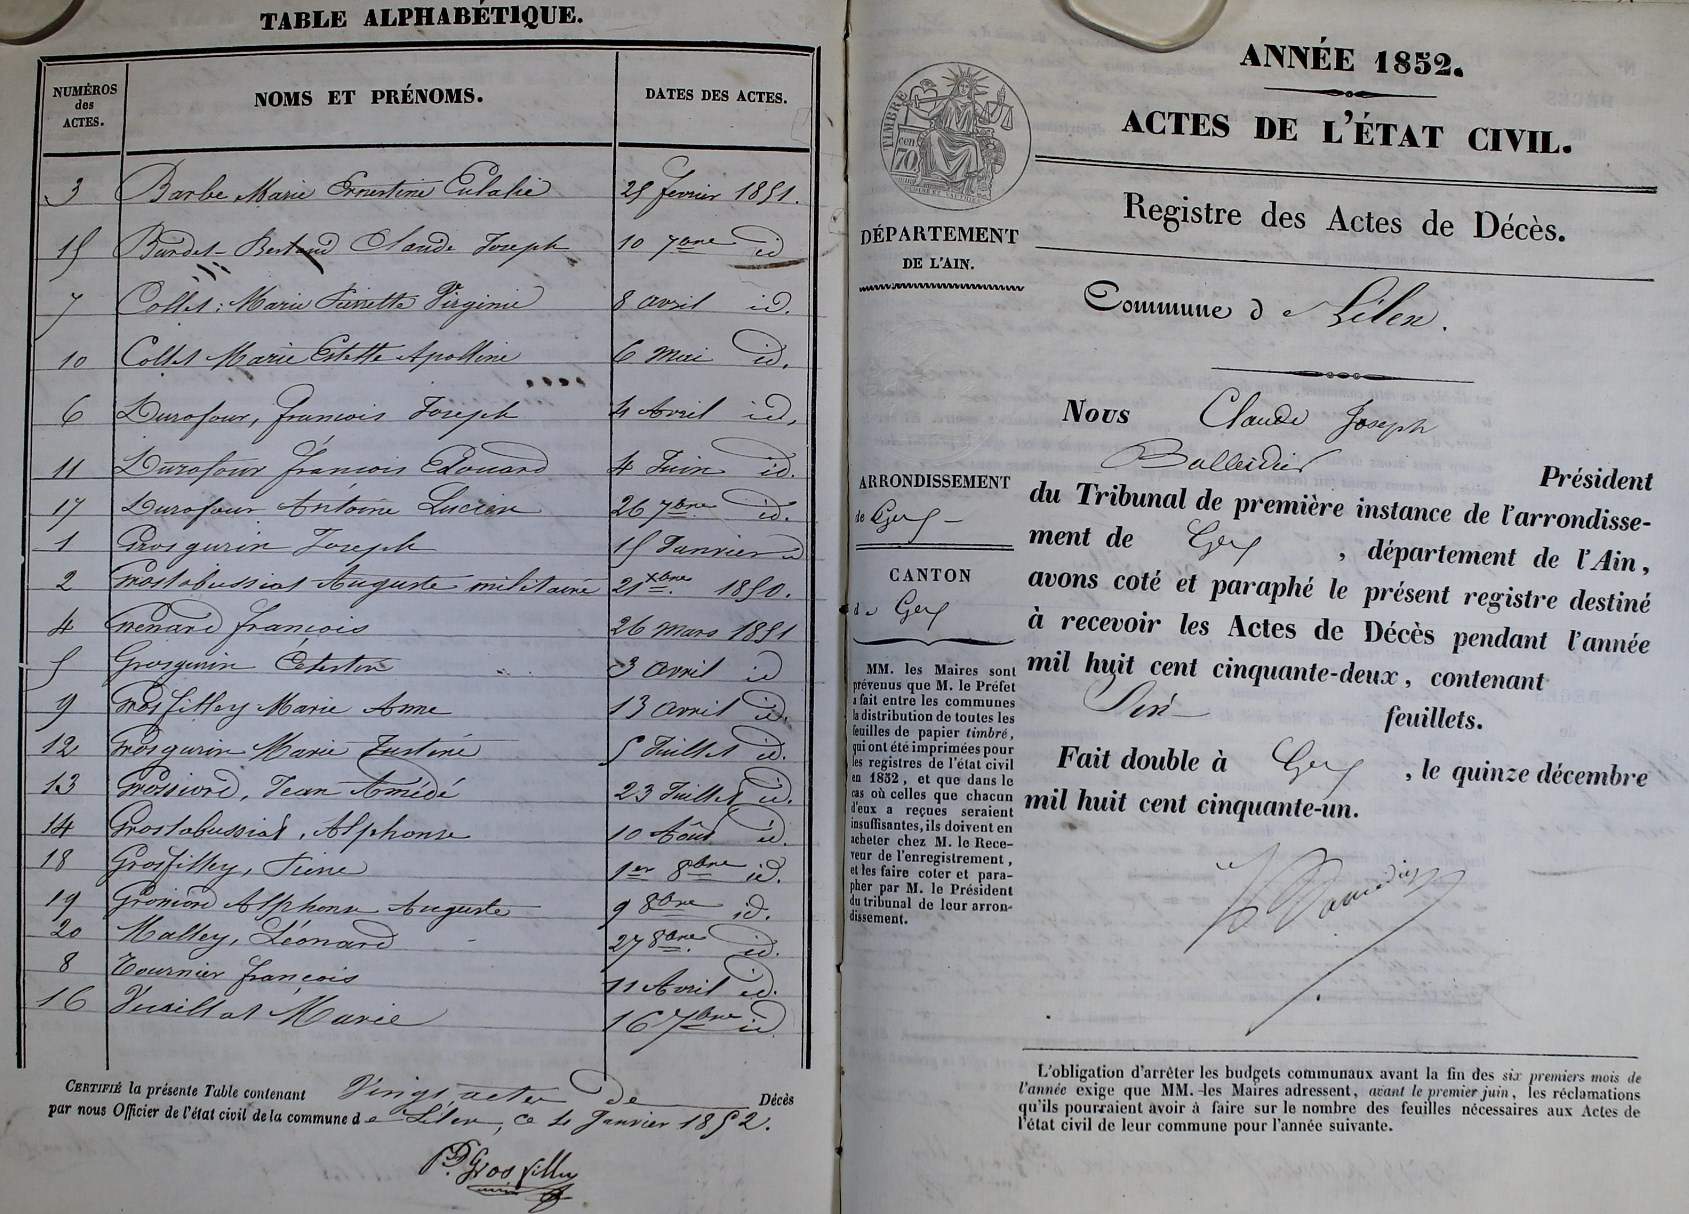 TABLE ALPHABÉTIQUE.
NUMÉROS des ACTES. NOMS ET PRÉNOMS. DATES DES ACTES.
3 Barbe Marie Ernestine Eulalie 25 fevrier 1851.
15 Burdet Bertrand Claude Joseph 10 7bre id
7 Collet Marie Pierrette Virginie 8 avril id.
10 Collet Marie Estelle Apolline 6 Mai id.
6 Durafour, françois Joseph 4 Avril id.
11 Durafour françois Edouard 4 Juin id.
17 Durafour Antoine Lucien 26 7bre id.
1 Grosgurin Joseph 15 Janvier id
2 Grostabussiat Auguste militaire 21 xbre. 1850.
4 Grenard françois 26 mars 1851
5 Grosgurin Célestin 3 avril id
9 Grosfilley Marie Anne 13 avril id.
12 Grosgurin Marie Justine 5 Juillet id.
13 Grossiord, Jean Amédé 23 Juillet id.
14 Grostabussiat, Alphonse 10 Août id.
18 Grosfilley, 1er 8bre id.
19 Alphonse Auguste 9 8bre id.
20 Malley, Léonard 27 8bre id.
8 Tournier françois 11 Avril id.
16 Vuaillat Marie 16 7bre id
CERTIFIÉ la présente Table contenant Vingt actes de Décès
par nous Officier de l'état civil de la commune de Lélex, ce 4 Janvier 1852.
Grosfilley
ANNÉE 1852.
ACTES DE L'ÉTAT CIVIL.
Registre des Actes de Décès.
TIMBRE
70 cen
DÉPARTEMENT
DE L'AIN.
Commune de Lélex.
ARRONDISSEMENT
de Gex
CANTON
de Gex
MM. les Maires sont
prévenus que M. le Préfet
a fait entre les communes
la distribution de toutes les
feuilles de papier timbré,
qui ont été imprimées pour
les registres de l'état civil
en 1852, et que dans le
cas où celles que chacun
d'eux a reçues seraient
insuffisantes, ils doivent en
acheter chez M. le Rece-
veur de l'enregistrement,
et les faire coter et para-
pher par M. le Président
du tribunal de leur arron-
dissement.
Nous Claude Joseph
Balleidier Président
du Tribunal de première instance de l'arrondisse-
ment de Gex, département de l'Ain,
avons coté et paraphé le présent registre destiné
à recevoir les Actes de Décès pendant l'année
mil huit cent cinquante-deux, contenant
feuillets.
Fait double à Gex, le quinze décembre
mil huit cent cinquante-un.
L'obligation d'arrêter les budgets communaux avant la fin des six premiers mois de
l'année exige que MM. les Maires adressent, avant le premier juin, les réclamations
qu'ils pourraient avoir à faire sur le nombre des feuilles nécessaires aux Actes de
l'état civil de leur commune pour l'année suivante.